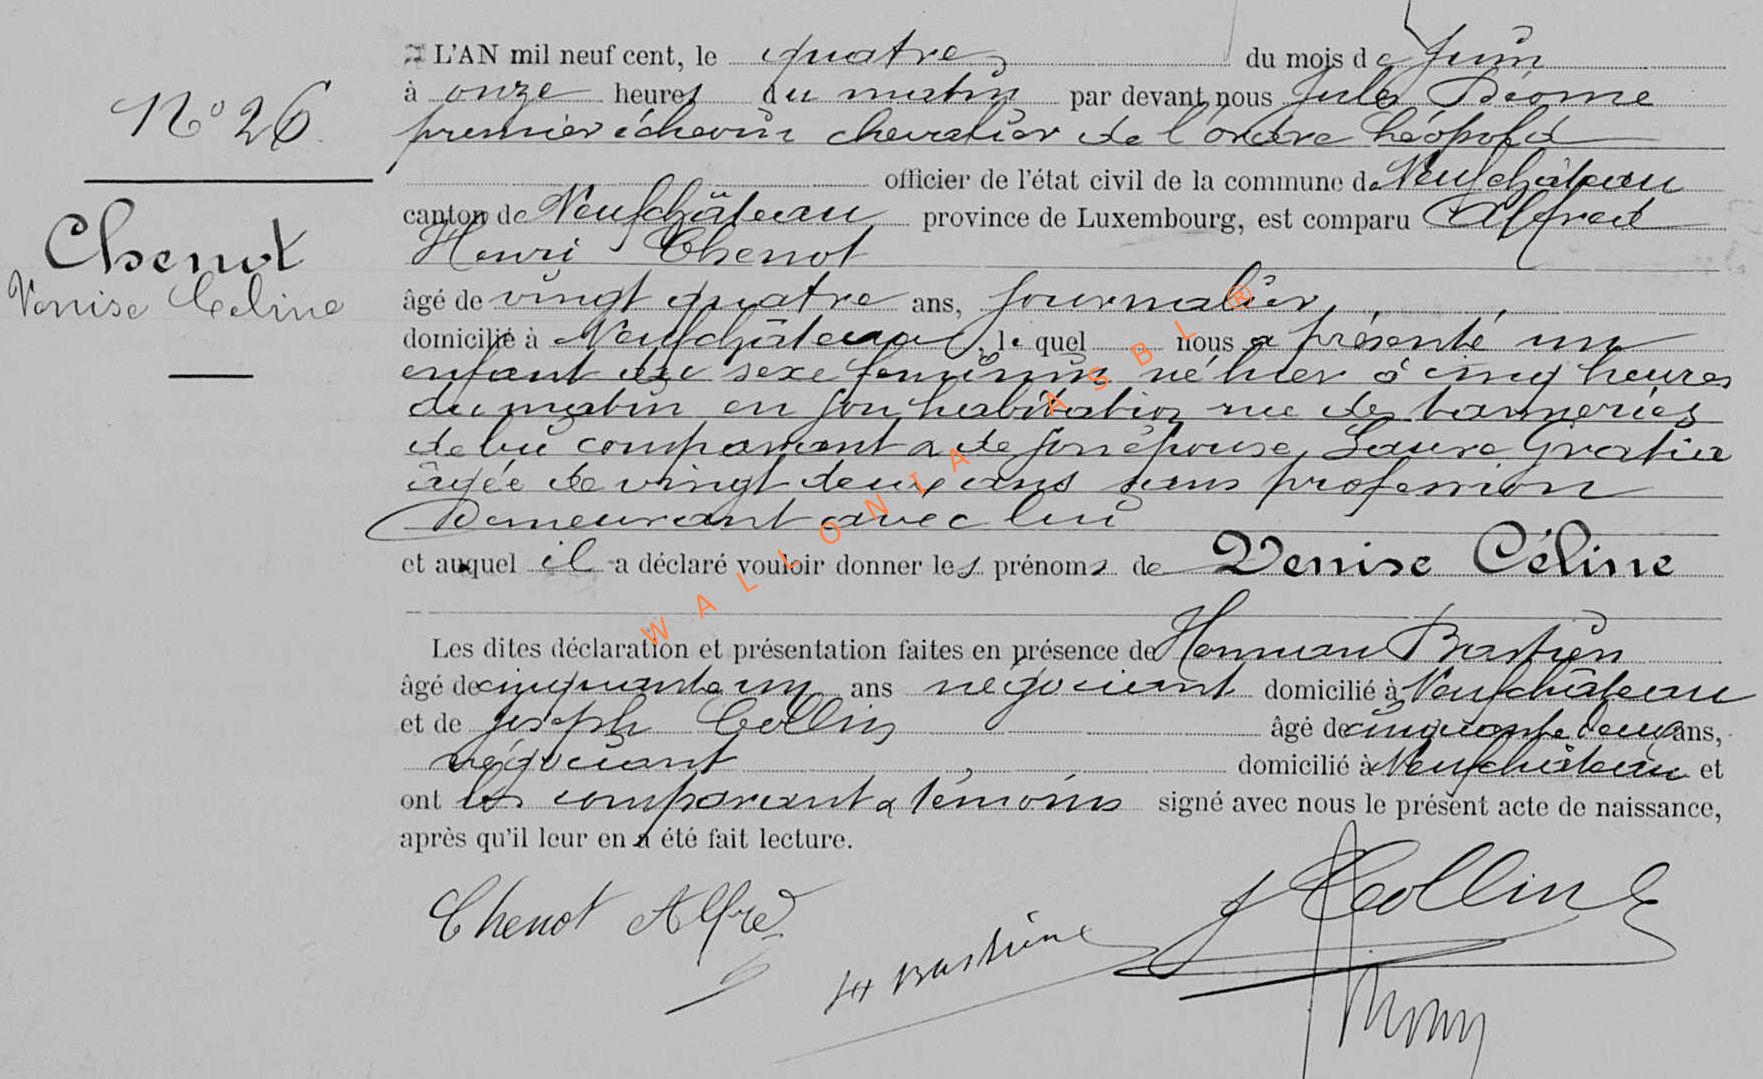 N° 26.
Chenot
Venise Celine
L'AN mil neuf cent, le quatre du mois de Juin
à onze heures du matin par devant nous Jules
premier échevin chevalier de l'ordre Léopold
officier de l'état civil de la commune de Neufchâteau
canton de Neufchâteau province de Luxembourg, est comparu Alfred
Henri Chenot
âgé de vingt quatre ans, journalier,
domicilié à Neufchâteau, le quel nous a présenté un
enfant du sexe féminin né hier à cinq heures
du matin en son habitation rue des tanneries
de lui comparant & de son épouse, Laure Gratia
âgée de vingt deux ans sans profession
Demeurant avec lui
et auquel il a déclaré vouloir donner les prénoms de Venise Céline
Les dites déclaration et présentation faites en présence de Herman Bastien
âgé de cinquante un ans négociant domicilié à Neufchâteau
et de Joseph Collin âgé de cinquante deux ans,
négociant, domicilié à Neufchâteau et
ont les comparant & témoins signé avec nous le présent acte de naissance,
après qu'il leur en a été fait lecture.
Chenot Alfred
H Bastien
J Collin
WALLONIA ASBL ®